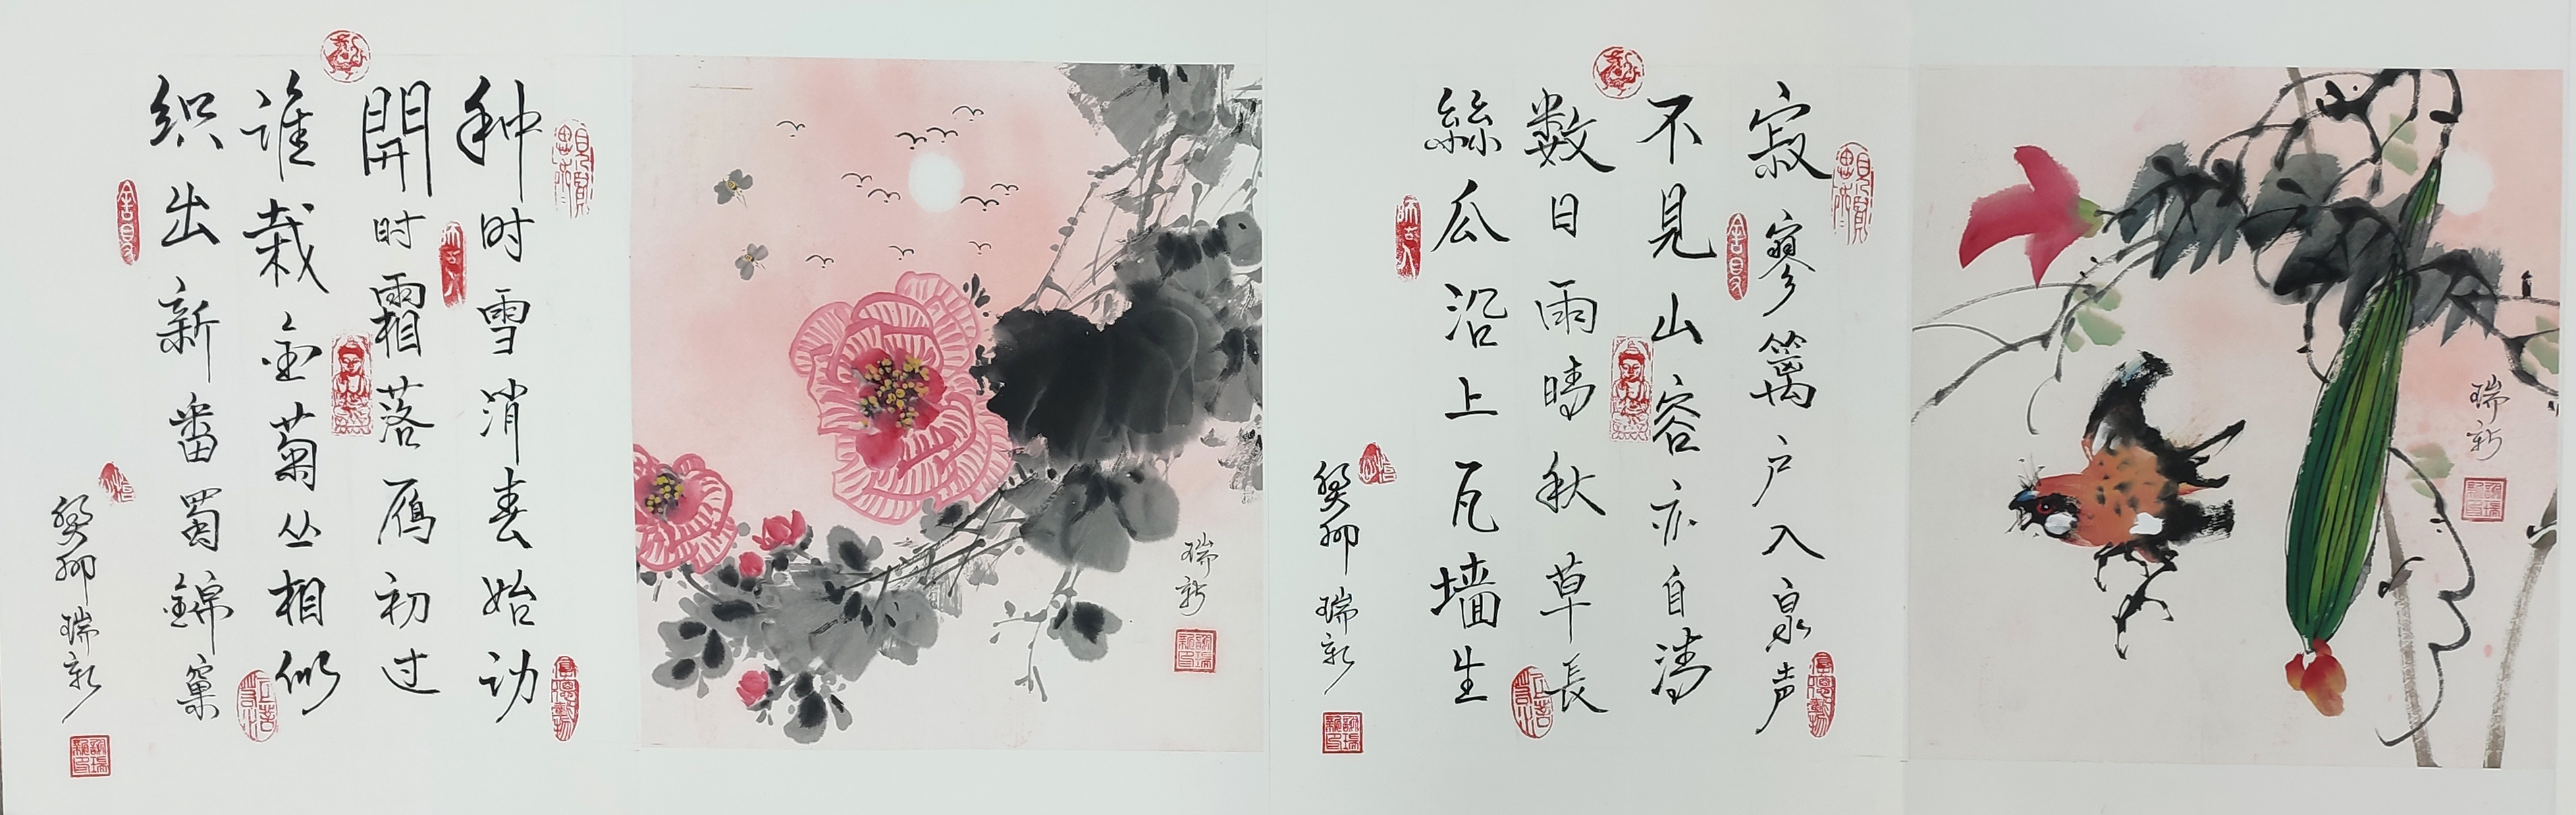 瑞新
寂寥篱户入泉声
不見山容亦自清
数日雨晴秋草長
絲瓜沿上瓦墙生
癸卯 瑞新
瑞新
种时雪消春始动
開时霜落雁初过
谁栽金菊丛相似
织出新番蜀錦窠
癸卯 瑞新